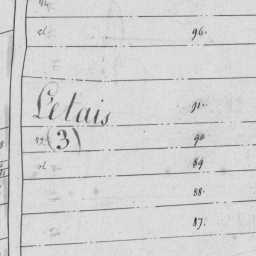 d. 96.
Letais 91.
(3) 90
d. 89
88.
87.